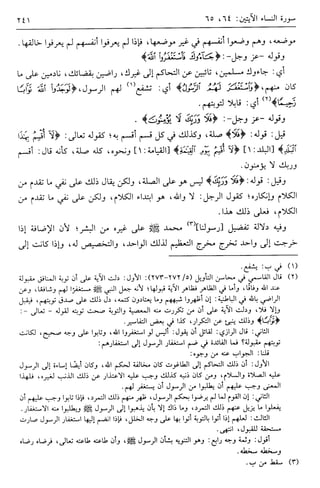 سورة النساء الآيتين: ٦٤، ٦٥
٢٤١
موضعه، وهم وضعوا أنفسهم في غير موضعها، فإذا لم يعرفوا أنفسهم لم يعرفوا خالقها.
وقوله -عز وجل-: ﴿جَآءُوكَ فَٱسْتَغْفَرُوا۟ ٱللَّهَ﴾
أي: جاءوك مسلمين، تائبين عن التحاكم إلى غيرك، راضين بقضائك، نادمين على ما
كان منهم، ﴿وَٱسْتَغْفَرَ لَهُمُ ٱلرَّسُولُ﴾ أي: تشفع(١) لهم الرسول، ﴿لَوَجَدُوا۟ ٱللَّهَ تَوَّابًا
رَّحِيمًا﴾(٢) أي: قابلا لتوبتهم.
وقوله -عز وجل-: ﴿فَلَا وَرَبِّكَ لَا يُؤْمِنُونَ﴾.
قيل: قوله: ﴿فَلَا وَرَبِّكَ﴾ صلة، وكذلك في كل قسم أقسم به؛ كقوله تعالى: ﴿لَآ أُقْسِمُ بِهَٰذَا
ٱلْبَلَدِ﴾ [البلد: ١] ﴿لَآ أُقْسِمُ بِيَوْمِ ٱلْقِيَٰمَةِ﴾ [القيامة: ١] ونحوه، كله صلة، كأنه قال: أقسم
وربك لا يؤمنون.
وقيل: قوله: ﴿فَلَا وَرَبِّكَ﴾ ليس هو على الصلة، ولكن يقال ذلك على نفي ما تقدم من
الكلام وإنكاره؛ كقول الرجل: لا والله، هو ابتداء الكلام، ولكن على نفي ما تقدم من
الكلام، فعلى ذلك هذا.
وفيه دلالة تفضيل [رسولنا](٣) محمد ﷺ على غيره من البشر؛ لأن الإضافة إذا
خرجت إلى واحد تخرج مخرج التعظيم لذلك الواحد، والتخصيص له، وإذا كانت إلى
(١) في ب: يشفع.
(٢) قال القاسمي في محاسن التأويل (٥/ ٢٧٢-٢٧٣): الأول: دلت الآية على أن توبة المنافق مقبولة
عند الله وفاقًا، وأما في الظاهر فظاهر الآية قبولها؛ لأنه جعل النبي ﷺ مستغفرًا لهم وشافعًا، وعن
الراضي بالله في الباطنية: إن أظهروا شبههم وما يعتادون كتمه، دل ذلك على صدق توبتهم، فيقبل
وإلا فلا، ودلت الآية على أن من تكررت منه المعصية والتوبة صحت توبته لقوله - تعالى -:
﴿تَوَّابًا﴾ وذلك ينبئ عن التكرار، كذا في بعض التفاسير.
الثاني: قال الرازي: لقائل أن يقول: أليس لو استغفروا الله، وتابوا على وجه صحيح، لكانت
توبتهم مقبولة؟ فما الفائدة في ضم استغفار الرسول إلى استغفارهم؟
قلنا: الجواب عنه من وجوه:
الأول: أن ذلك التحاكم إلى الطاغوت كان مخالفة لحكم الله، وكان أيضًا إساءة إلى الرسول
عليه الصلاة والسلام، ومن كان ذنبه كذلك وجب عليه الاعتذار عن ذلك الذنب لغيره، فلهذا
المعنى وجب عليهم أن يطلبوا من الرسول أن يستغفر لهم.
الثاني: إن القوم لما لم يرضوا بحكم الرسول، ظهر منهم ذلك التمرد، فإذا تابوا وجب عليهم أن
يفعلوا ما يزيل عنهم ذلك التمرد، وما ذاك إلا بأن يذهبوا إلى الرسول ﷺ ويطلبوا منه الاستغفار.
الثالث: لعلهم إذا أتوا بالتوبة أتوا بها على وجه الخلل، فإذا انضم إليها استغفار الرسول صارت
مستحقة للقبول، انتهى.
أقول: وثمة وجه رابع: وهو التنويه بشأن الرسول ﷺ، وأن طاعته طاعته تعالى، فرضاه رضاه
وسخطه سخطه.
(٣) سقط من ب.